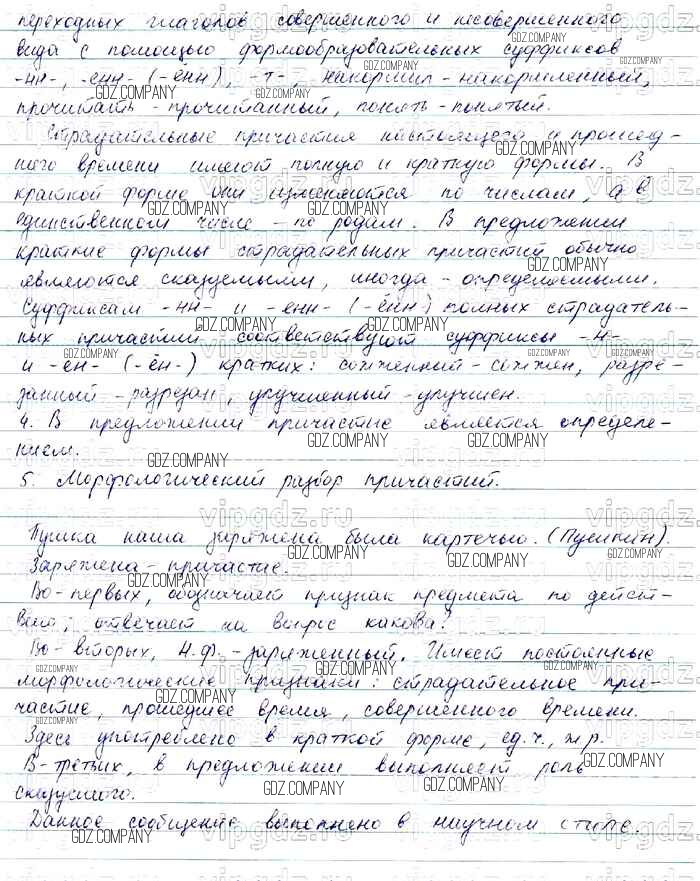 переходных глаголов совершенного и несовершенного
вида с помощью формообразовательных суффиксов
-нн-, -енн- (-ённ), -т-, накормил - накормленный,
прочитать - прочитанный, понять - понятый.
Страдательные причастия настоящего и прошед-
ного времени имеют полную и краткую формы. В
краткой форме они изменяются по числам, а в
единственном числе - по родам. В предложении
краткие формы страдательных причастий обычно
являются сказуемыми, иногда - определяемыми.
Суффиксам -нн- и -енн- (-ённ) полных страдатель-
ных причастий соответствуют суффиксы -н-
и -ен- (-ён-) кратких: сожженный - сожжен, разре-
занный - разрезан, улучшенный - улучшен.
4. В предложении причастие является определе-
нием.
5. Морфологический разбор причастий.
Пушка наша заряжена была картечью. (Пушкин).
Заряжена - причастие.
Во-первых, обозначает признак предмета по дейст-
вию, отвечает на вопрос какова?
Во-вторых, Н.ф. - заряженный. Имеет постоянные
морфологические признаки: страдательное при-
частие, прошедшее время, совершенного времени.
Здесь употреблено в краткой форме, ед.ч., ж.р.
В-третьих, в предложении выполняет роль
сказуемого.
Данное сообщение выполнено в научном стиле.
GDZ.COMPANY
vipgdz.ru